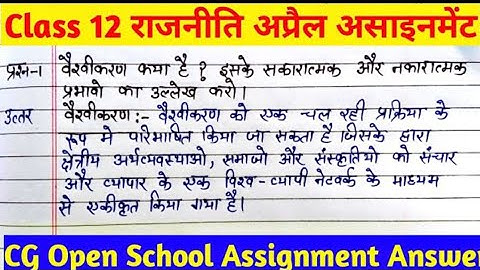 Class 12 राजनीति अप्रैल असाइनमेंट
प्रश्न-1 वैश्वीकरण क्या है ? इसके सकारात्मक और नकारात्मक
प्रभावो का उल्लेख करो।
उत्तर वैश्वीकरण :- वैश्वीकरण को एक चल रही प्रक्रिया के
रूप मे परिभाषित किया जा सकता है जिसके द्वारा
क्षेत्रीय अर्थव्यवस्थाओ, समाजो और संस्कृतियो को संचार
और व्यापार के एक विश्व-व्यापी नेटवर्क के माध्यम
से एकीकृत किया गया है।
CG Open School Assignment Answer